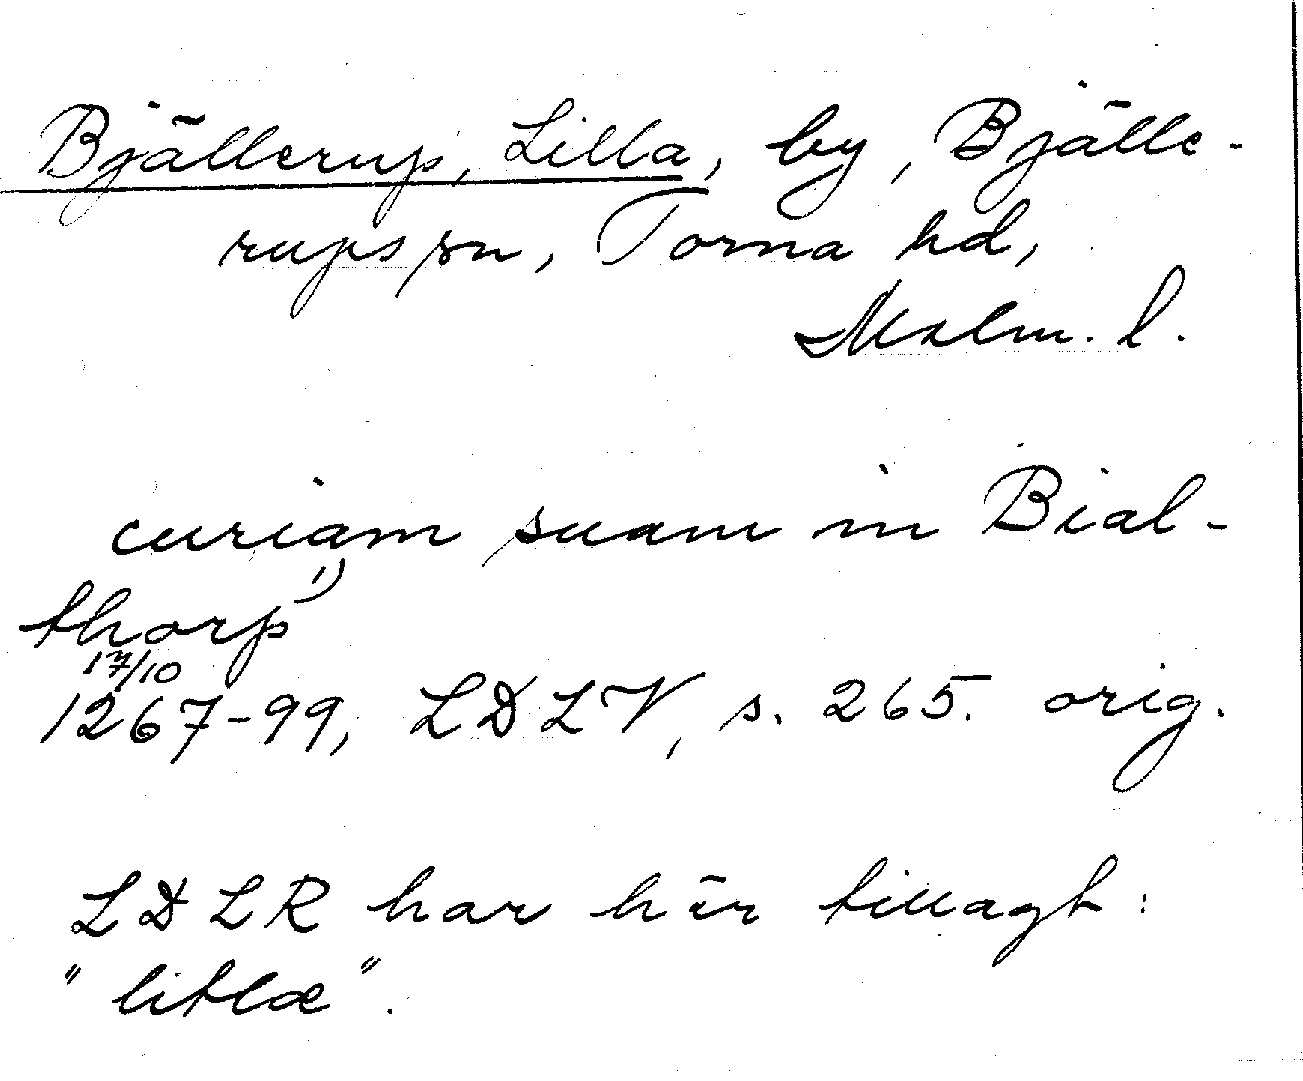 Bjällerup, Lilla, by, Bjälle-
rups sn, Torna hd,
Malm. l.
curiam suam in Bial-
thorp 1)
17/10
1267-99, LDLV, s. 265. orig.
LDLR har här tillagt:
"litlæ".